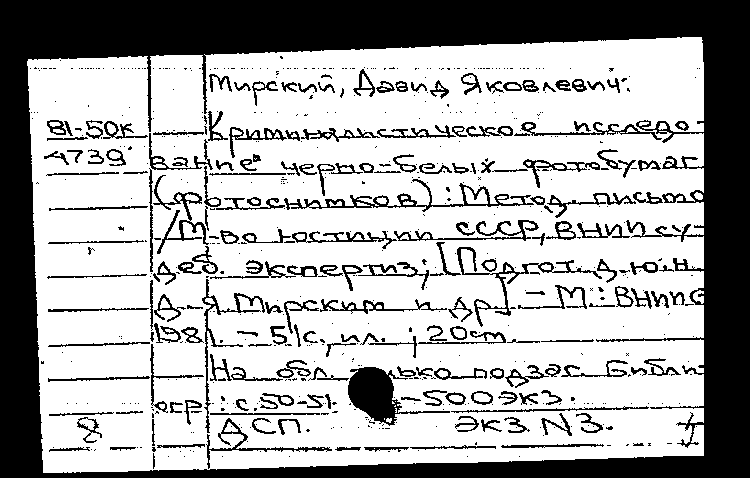 Мирский, Давид Яковлевич.
81-50к
4739
Криминалистическое исследо-
вание черно-белых фотобумаг
(фотоснимков): Метод. письмо
/М-во юстиции СССР, ВНИИ су-
деб. экспертиз; [Подгот. д.ю.н.
Д.Я. Мирским и др.] - М.: ВНИИС
1981. - 51с., ил.; 20см.
На обл. только подзаг. Библи-
огр.: с. 50-51. -500экз.
8
ДСП. экз N3.